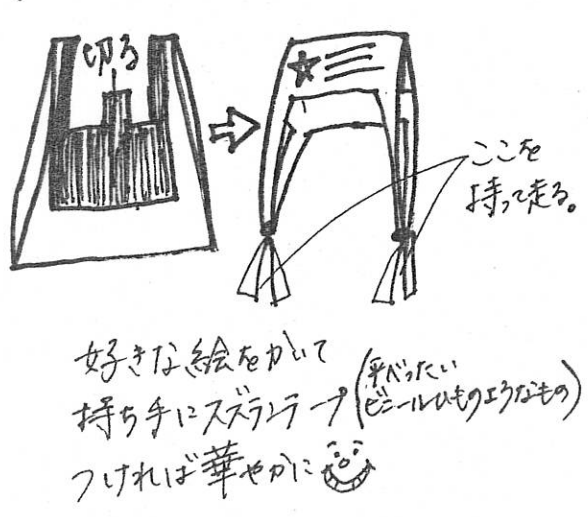 切る
ここを
持って走る。
好きな絵をかいて
持ち手にスズランテープ(平べったい
ビニールひものようなもの)
つければ華やかに